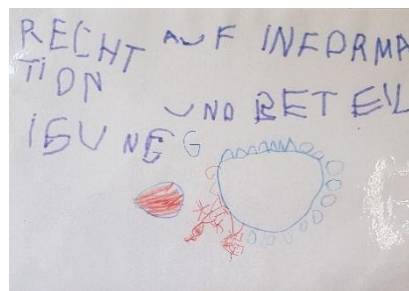 RECHT AUF INFORMA
TION
UND BETEIL
IGUNEG G